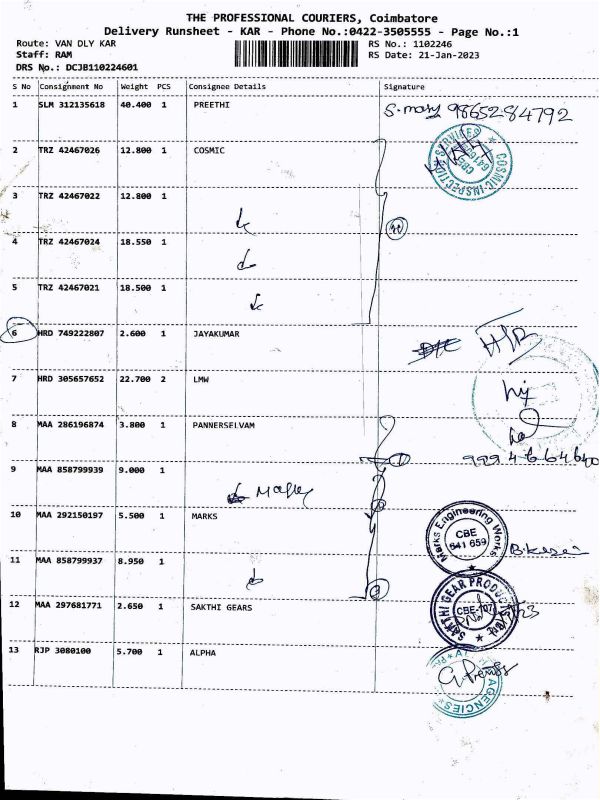 THE PROFESSIONAL COURIERS, Coimbatore
Delivery Runsheet - KAR - Phone No.:0422-3505555 - Page No.:1
Route: VAN DLY KAR RS No.: 1102246
Staff: RAM RS Date: 21-Jan-2023
DRS No.: DCJB110224601
S No Consignment No Weight PCS Consignee Details Signature
1 SLM 312135618 40.400 1 PREETHI S. mary 9865284792
2 TRZ 42467026 12.800 1 COSMIC
COSMIC INSPECTION SERVICES CBE
3 TRZ 42467022 12.800 1
4 TRZ 42467024 18.550 1
5 TRZ 42467021 18.500 1
6 HRD 749222807 2.600 1 JAYAKUMAR
7 HRD 305657652 22.700 2 LMW
8 MAA 286196874 3.800 1 PANNERSELVAM
9 MAA 858799939 9.000 1
10 MAA 292150197 5.500 1 MARKS
Marks Engineering Works CBE 641 659
11 MAA 858799937 8.950 1
12 MAA 297681771 2.650 1 SAKTHI GEARS
SAKTHI GEAR PRODUCTS CBE-107
13 RJP 3080100 5.700 1 ALPHA
AGENCIES